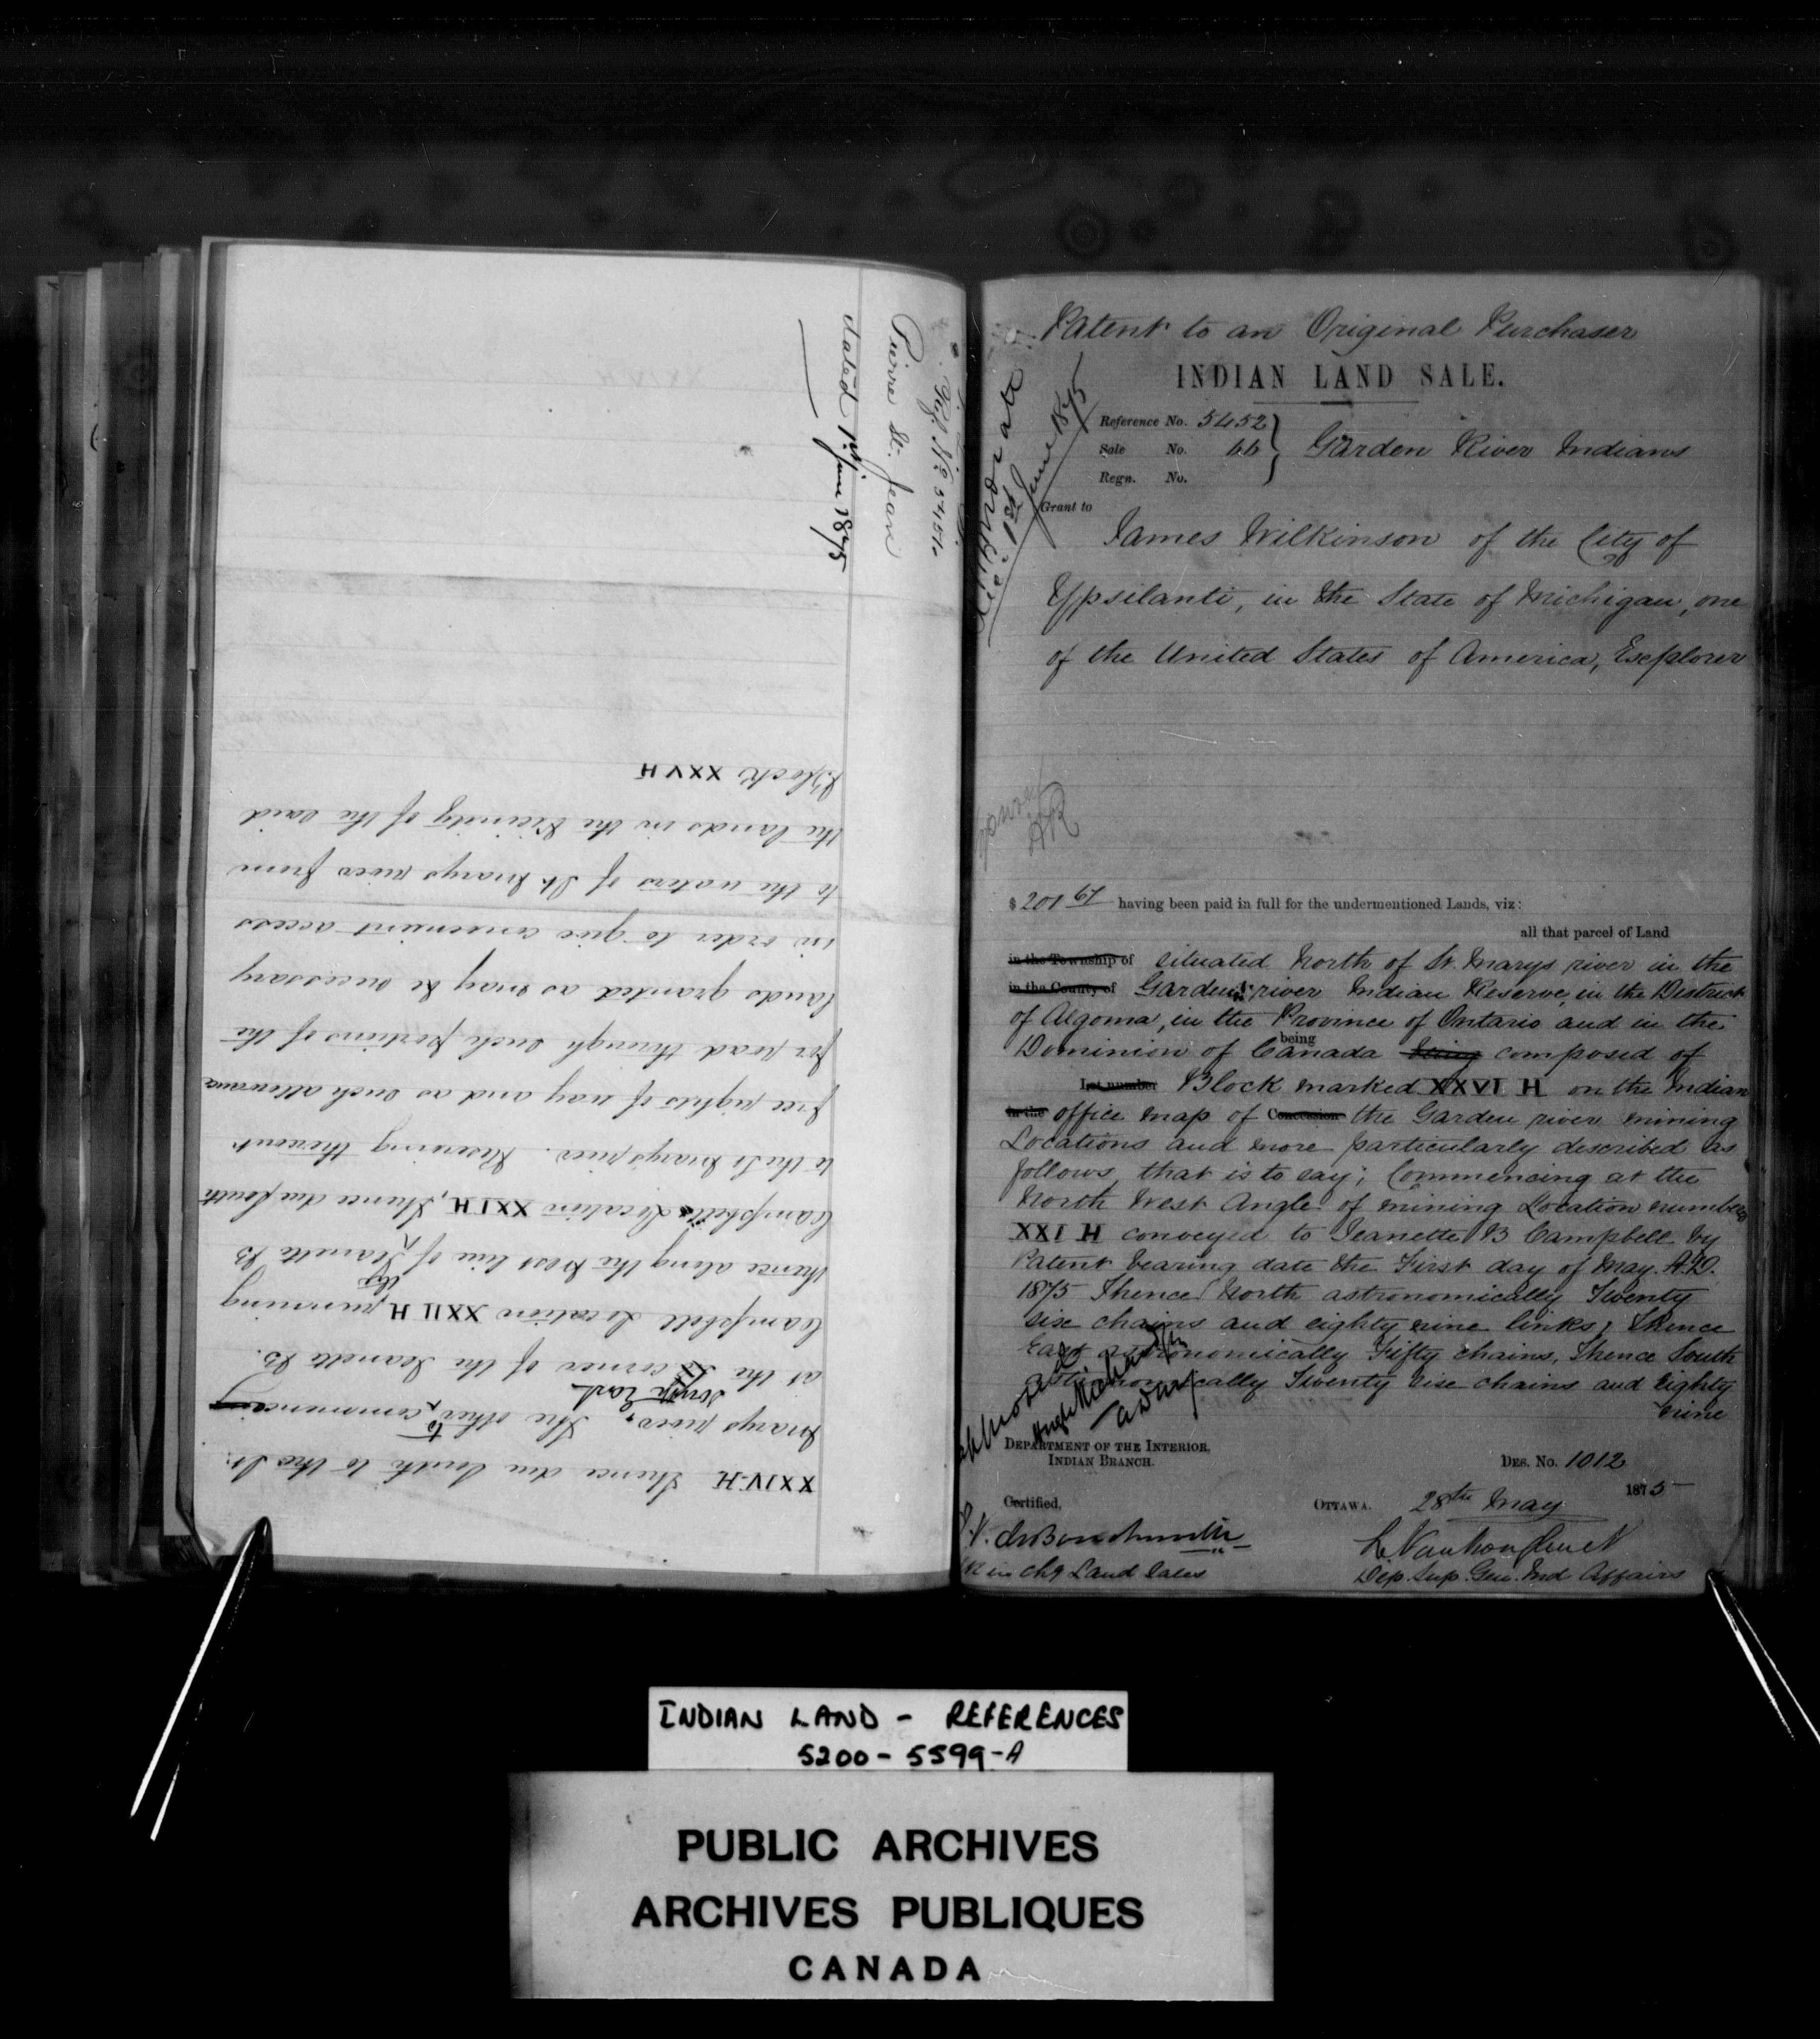 XXIV-H thence due South to the St.
Marys river, The other to commencing
at the South East corner of the Jeanette B.
Campbell Location XXII H, running
thence along the West line of the Jeanette B
Campbell's Location XXI H, thence due South
to the St Marys river. Reserving thereout
free rights of way and as such allowance
for road through such portions of the
lands granted as may be necessary
in order to give convenient access
to the waters of St. Marys river from
the lands in the Vicinity of the said
Block XXV H
Pierre St. Jean
dated 1st June 1875
Patent to an Original Purchaser
INDIAN LAND SALE.
Reference No. 5452
Sale No. 66
Regn. No.
Garden River Indians
1st June 1875
Grant to
James Wilkinson of the City of
Ypsilanti, in the State of Michigan, one
of the United States of America, Explorer
$201 67 having been paid in full for the undermentioned Lands, viz:
all that parcel of Land
in the Township of situated North of St. Marys river in the
in the County of Garden river Indian Reserve, in the District
of Algoma, in the Province of Ontario and in the
Dominion of Canada being being composed of
Lot number Block marked XXVI H on the Indian
in the office map of Concession the Garden river mining
Locations and more particularly described as
follows that is to say; Commencing at the
North West Angle of mining Location number
XXI H conveyed to Jeanette B Campbell by
Patent bearing date the First day of May. A.D.
1875 Thence North astronomically Twenty
six chains and eighty nine links; Thence
East astronomically Fifty chains, Thence South
astronomically Twenty six chains and Eighty
nine
approved
DEPARTMENT OF THE INTERIOR,
INDIAN BRANCH.
DES. No. 1012
Certified,
OTTAWA. 28th May 1875
in chg Land Sales
L Vankoughnet
Dep. Sup. Gen. Ind Affairs
INDIAN LAND - REFERENCES
5200 - 5599-A
PUBLIC ARCHIVES
ARCHIVES PUBLIQUES
CANADA